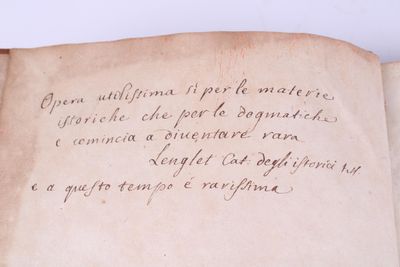 Opera utilissima sì per le materie
istoriche che per le dogmatiche
e comincia a diventare rara
Lenglet Cat. degli istorici
e a questo tempo è rarissima